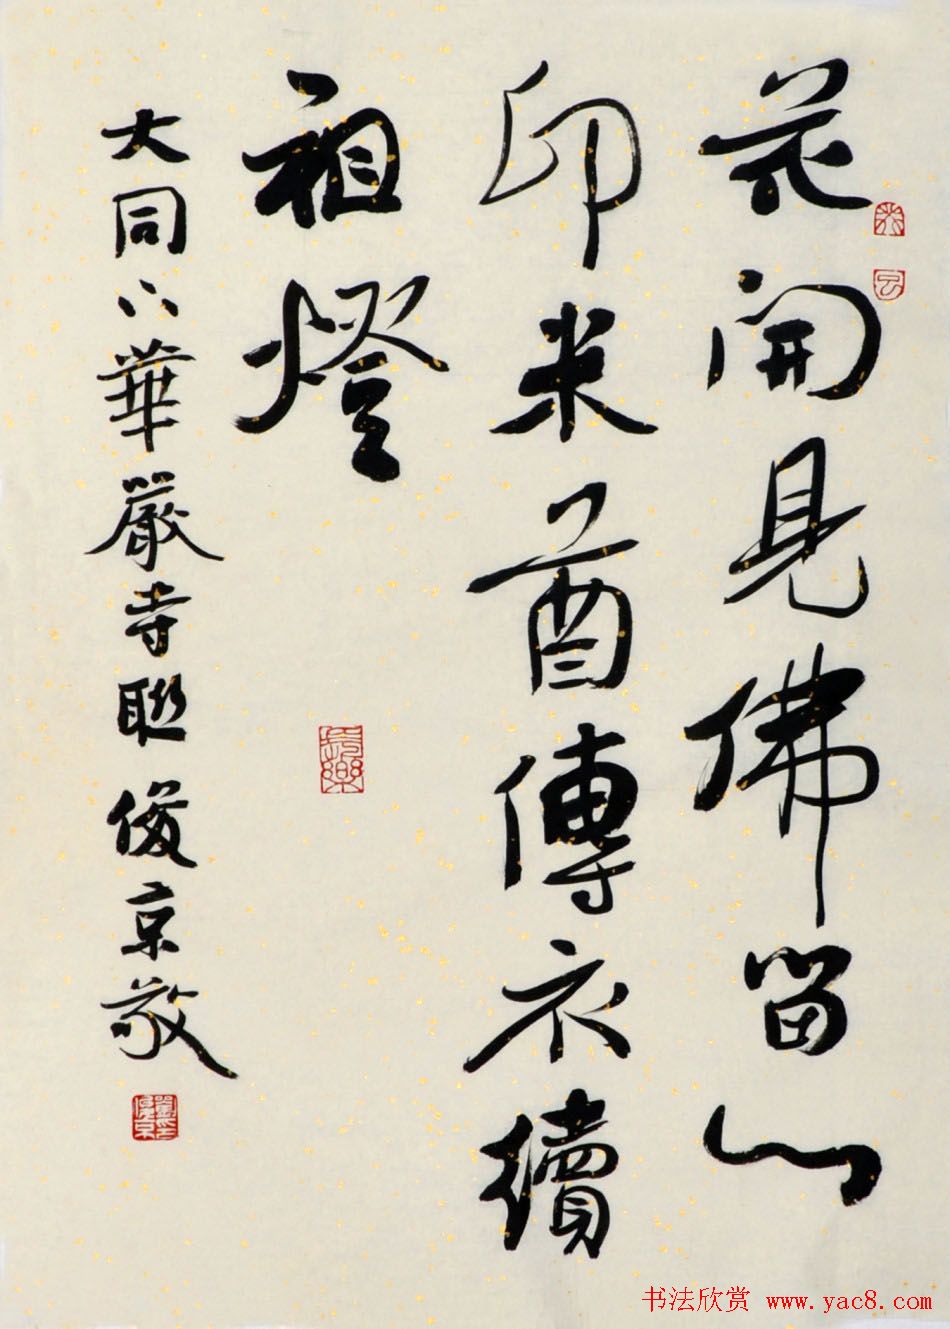 花開見佛留心
印米酋傳衣續
祖燈
大同下華嚴寺聯 俊京敬
長樂
书法欣赏 www.yac8.com